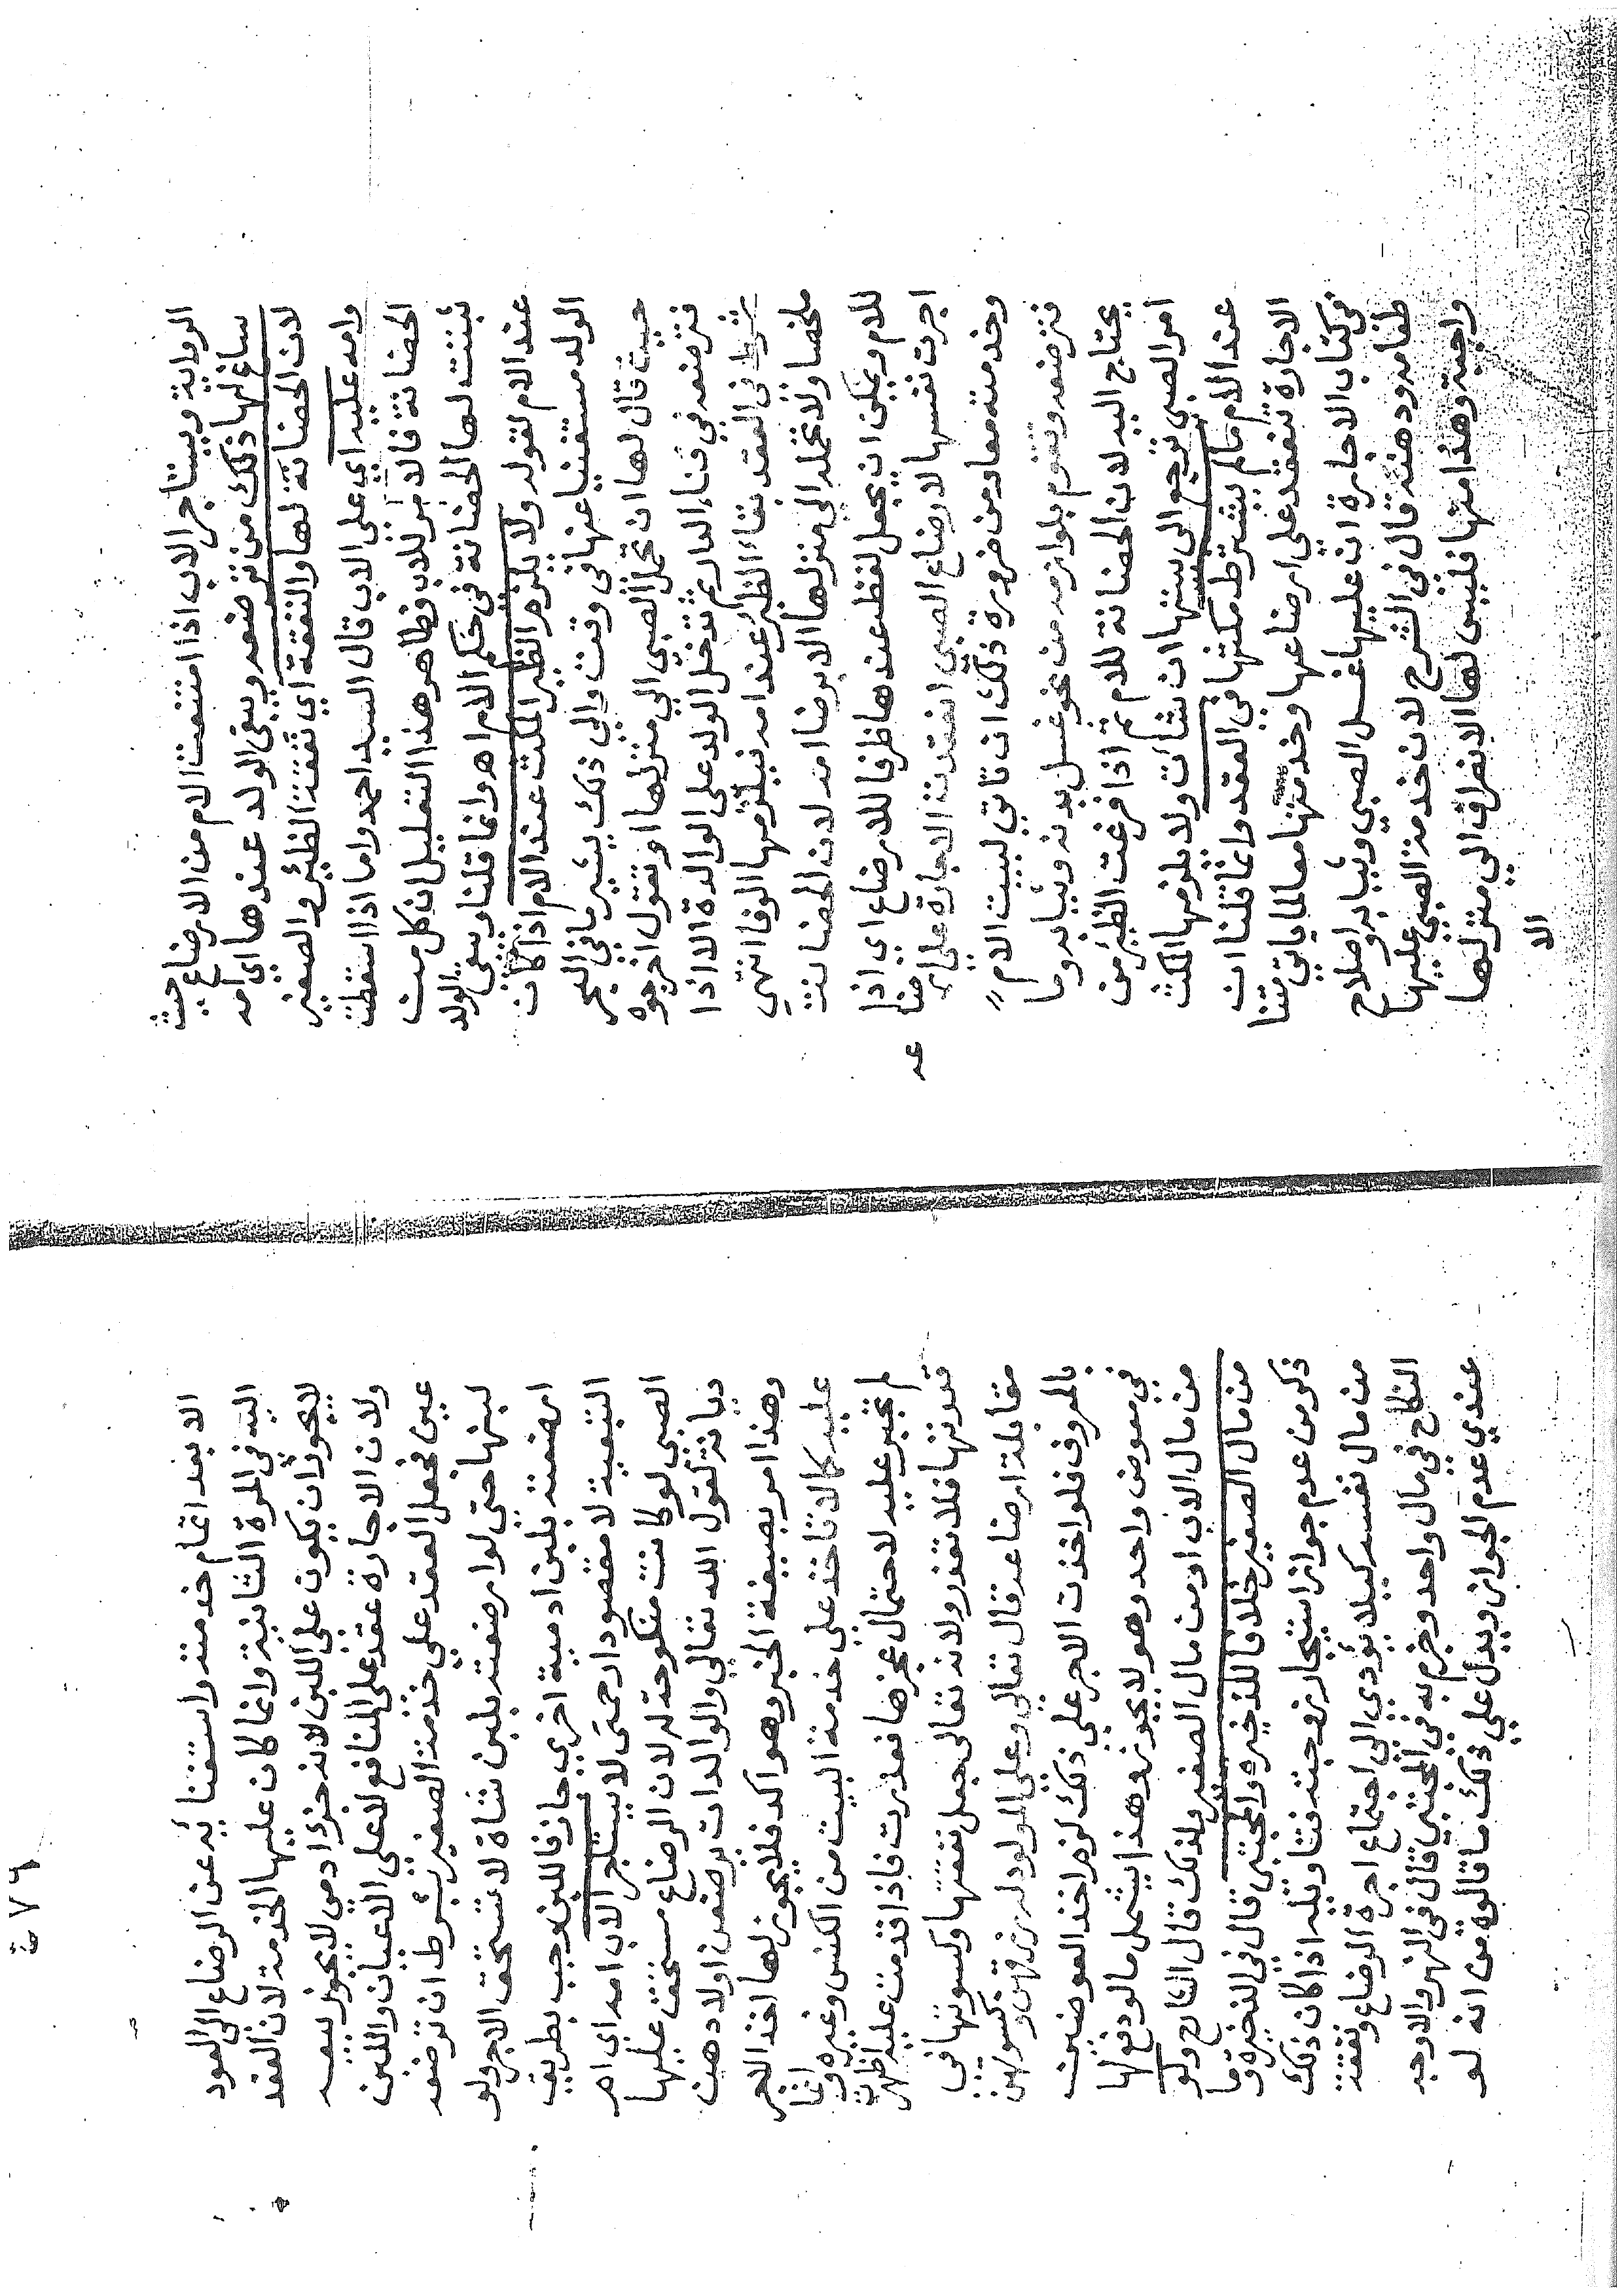 الرواية ويستاجر الاب اذا امتنعت الام من الارضاع حيث
ساغ لها ذلك من ترضعه ويبقى الولد عندها اي امه
لان الحضانة لها والنفقة اي نفقة الظئر والصغير
وامه عليه اي على الاب قال السيد احمد واما اذا اسقطت
الحضانة فالامر للاب فظاهر هذا التعليل ان كل من
ثبتت لها الحضانة في حكم الام اهـ وانما قلنا ويبقى الولد
عند الام لقوله ولا يلزم الظئر المكث عند الام اذا كان
الولد مستغنيا عنها في وقت والى ذلك يشير ما في البحر
حيث قال لها ان تحمل الصبي الى منزلها او تقول اخرجوه
فترضعه في فناء الدار ثم تدخل الولد على الوالدة الا اذا
شرط في العقد بقاء الظئر عند امه فيلزمها الوفا انتهى
ملخصا ولا تحمله الى منزلها الا برضا امه لان الحضانة
للام ويمكن ان يجعل لفظ عندها ظرفا للارضاع اي اذا
اجرت نفسها لارضاع الصبي انعقدت الاجارة على ارضاعه
وخدمته معا ومن ضرورة ذلك ان تاتي لبيت الام
فترضعه وتقوم بلوازمه من نحو غسل بدنه وثيابه وما
يحتاج اليه لان الحضانة للام ثم اذا فرغت الظئر من
امور الصبي ترجع الى بيتها ان شاءت ولا يلزمها المكث
عند الام ما لم يشترط مكثها في العقد وانما قلنا ان
الاجارة تنعقد على ارضاعها وخدمتها معا لما ياتي متنا
في كتاب الاجارة ان عليها غسل الصبي وثيابه واصلاح
طعامه ودهنه قال في الشرح لان خدمة الصبي عليها
واجبة وهذا منها فليس لها الانصراف الى منزلها
الا
الا بعد اتمام خدمته واستغنائه عن الرضاع الى العود
اليه في المرة الثانية وانما كان عليها الخدمة لان العقد
لا يجوز ان يكون على اللبن لانه جزؤ ادمي لا يجوز بيعه
ولان الاجارة عقد على المنافع لا على الاعيان واللبن
عين فجعل العقد على خدمة الصغير بشرط ان ترضعه
لبنها حتى لو ارضعته بلبن شاة لا تستحق الاجر ولو
ارضعته بلبن ادمية اخرى جاز فاللبن وجب بطريق
التبعية لا مقصودا رحمتى لا يستاجر الاب امه اي ام
الصبي لو كانت منكوحته لان الرضاع مستحق عليها
ديانة لقول الله تعالى والوالدات يرضعن اولادهن
وهذا امر بصيغة الخبر وهو اكد فلا يجوز لها اخذ الاجر
عليه كما لا تاخذ على خدمة البيت من الكنس وغيره وانما
لم تجبر عليه لاحتمال عجزها فعذرت فاذا اقدمت عليه ظهرت
قدرتها فلا تعذر ولانه تعالى جعل نفقتها وكسوتها في
مقابلة ارضاعه قال تعالى وعلى المولود له رزقهن وكسوتهن
بالمعروف فلو اخذت الاجر على ذلك لزم اخذ العوضين
في معوض واحد وهو لا يجوز وهذا يشمل ما لو دفع لها
من مال الابن او من مال الصغير ولذلك قال الشارح ولو
من مال الصغير خلافا للذخيرة والمجتبى قال في الذخيرة وما
ذكر من عدم جواز استيجار زوجته فتاويله اذا كان ذلك
من مال نفسه كيلا يؤدي الى اجتماع اجرة الرضاع ونفقة
النكاح في مال واحد وجزم به في المجتبى قال في النهر والاوجه
عندي عدم الجواز ويدل على ذلك ما قالوه من انه لو